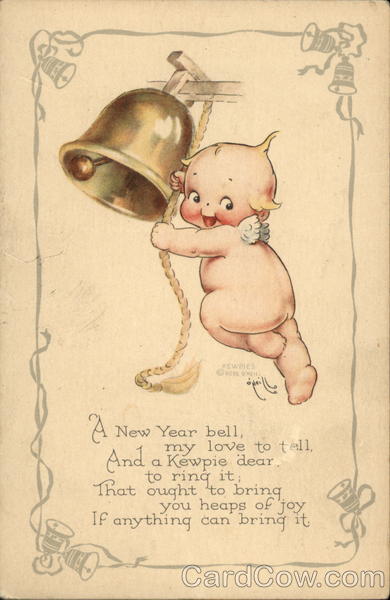 KEWPIES
© ROSE O'NEILL
O'Neill
A New Year bell,
my love to tell,
And a Kewpie dear
to ring it;
That ought to bring
you heaps of joy
If anything can bring it
CardCow.com